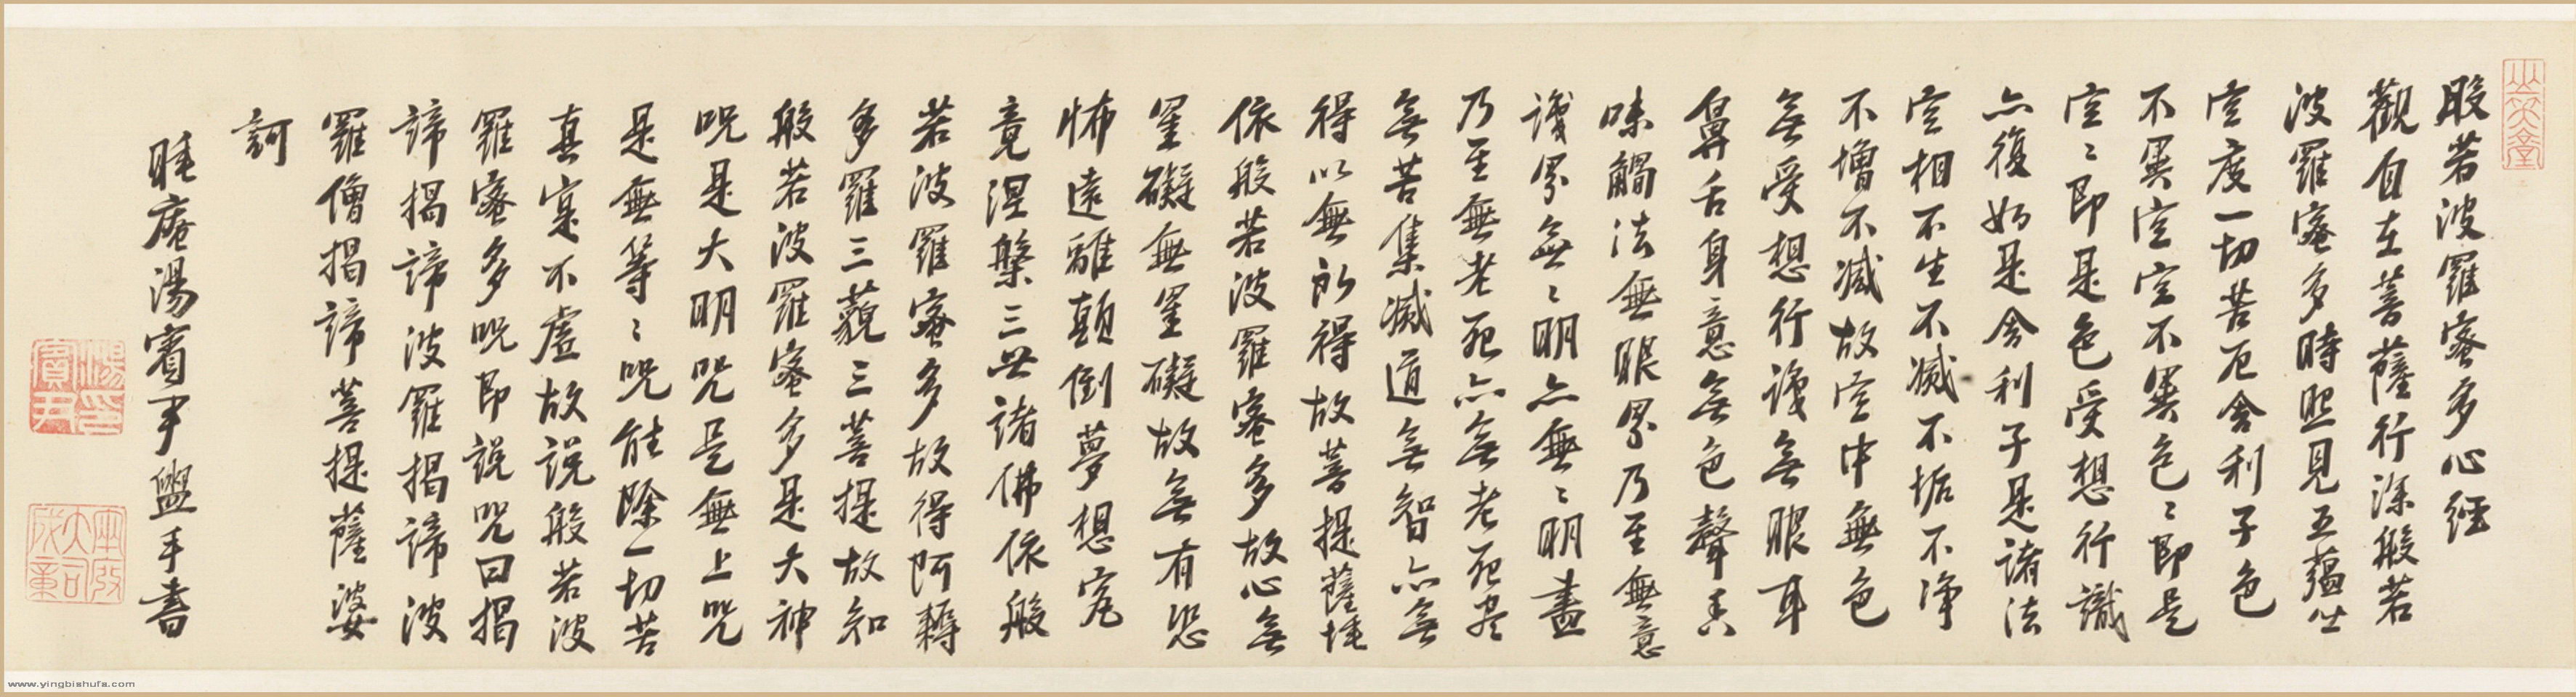 般若波羅蜜多心經
觀自在菩薩行深般若
波羅蜜多時照見五蘊皆
空度一切苦厄舍利子色
不異空空不異色〻即是
空〻即是色受想行識
亦復如是舍利子是諸法
空相不生不滅不垢不淨
不增不滅故空中無色
無受想行識無眼耳
鼻舌身意無色聲香
味觸法無眼界乃至無意
識界無〻明亦無〻明盡
乃至無老死亦無老死盡
無苦集滅道無智亦無
得以無所得故菩提薩埵
依般若波羅蜜多故心無
罣礙無罣礙故無有恐
怖遠離顛倒夢想究
竟涅槃三世諸佛依般
若波羅蜜多故得阿耨
多羅三藐三菩提故知
般若波羅蜜多是大神
呪是大明呪是無上呪
是無等〻呪能除一切苦
真寔不虛故說般若波
羅蜜多呪即說呪曰揭
諦揭諦波羅揭諦波
羅僧揭諦菩提薩婆
訶
睡庵湯賓尹盥手書
湯賓尹印
www.yingbishufa.com